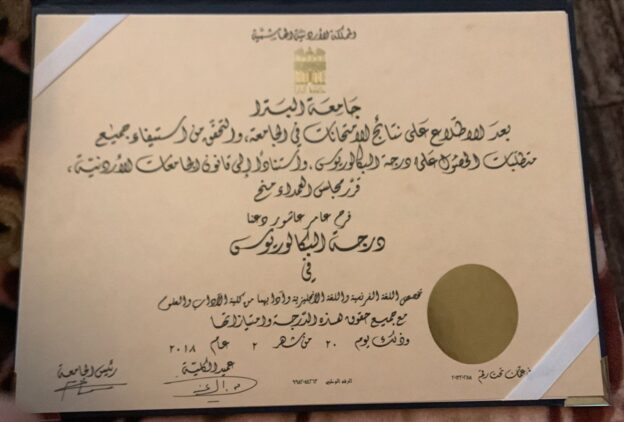 المملكة الأردنية الهاشمية
جامعة البترا
بعد الاطلاع على نتائج الامتحانات في الجامعة، والتحقق من استيفاء جميع
متطلبات الحصول على درجة البكالوريوس، واستنادًا إلى قانون الجامعات الأردنية،
قرر مجلس العمداء منح
فرح عامر عاشور دعنا
درجة البكالوريوس
في
تخصص اللغة الفرنسية واللغة الانجليزية وآدابهما من كلية الآداب والعلوم
مع جميع حقوق هذه الدرجة وامتيازاتها
وذلك يوم ٢٠ من شهر ٢ عام ٢٠١٨
رئيس الجامعة
عميد الكلية
الرقم الوطني
عمّان تحت رقم